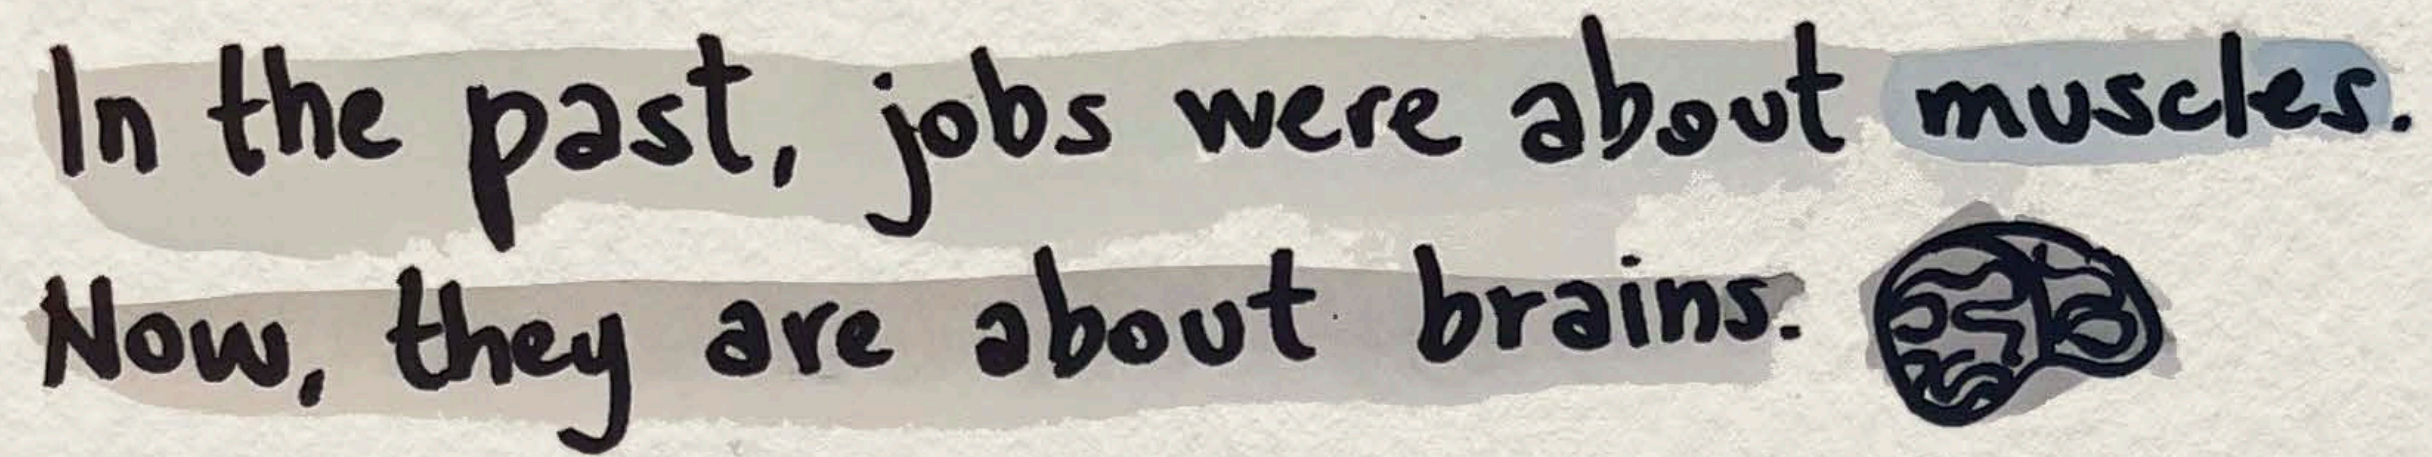 In the past, jobs were about muscles.
Now, they are about brains.